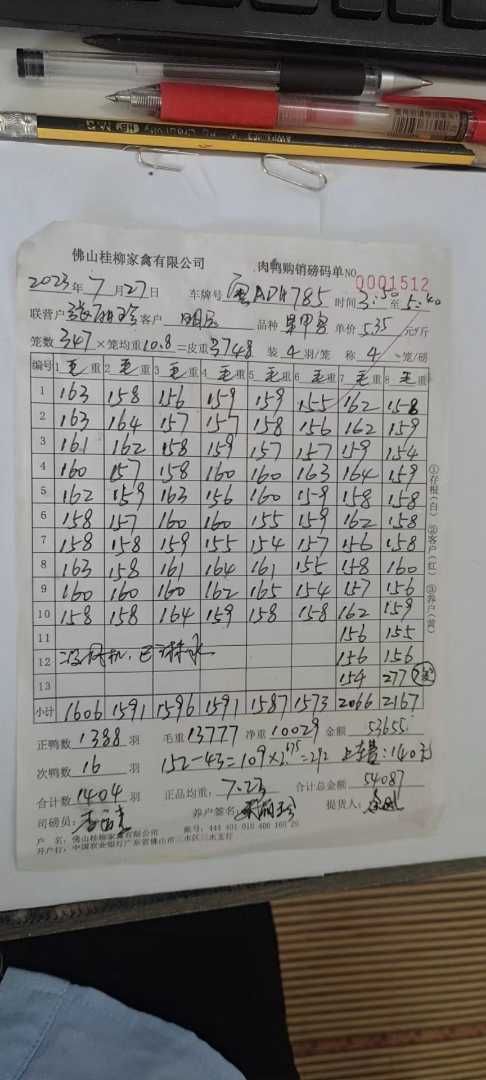 佛山桂柳家禽有限公司 肉鸭购销磅码单 NO 0001512
2023年7月27日 车牌号 粤ADH785 时间3:50至5:40
联营户 客户 品种 单价535元/斤
笼数347×笼均重10.8=皮重3748 装4羽/笼 称4笼/磅
编号 1毛重 2毛重 3毛重 4毛重 5毛重 6毛重 7毛重 8毛重
1 163 158 156 159 159 155 162 158
2 163 164 157 157 158 156 162 159
3 161 162 158 159 157 157 159 154
4 160 157 158 160 160 163 164 159
5 162 159 163 156 160 158 158 158
6 158 157 160 160 155 159 162 158
7 158 158 159 155 154 157 156 158
8 163 158 161 164 161 155 158 160
9 160 160 160 162 165 154 157 156
10 158 158 164 159 158 158 162 159
11 156 155
12 156 156
13 154 277
小计 1606 1591 1596 1591 1587 1573 2066 2167
正鸭数1388羽 毛重13777 净重10029 金额53655
次鸭数16羽 152-43=109×2.75=292 上车费:140元
合计数1404羽 正品均重:7.23 合计总金额54087
司磅员: 养户签名 提货人:
户 名:佛山桂柳家禽有限公司 账号:
开户行:中国农业银行广东省佛山市三水区三水支行
①存根(白) ②客户(红) ③养户(黄)